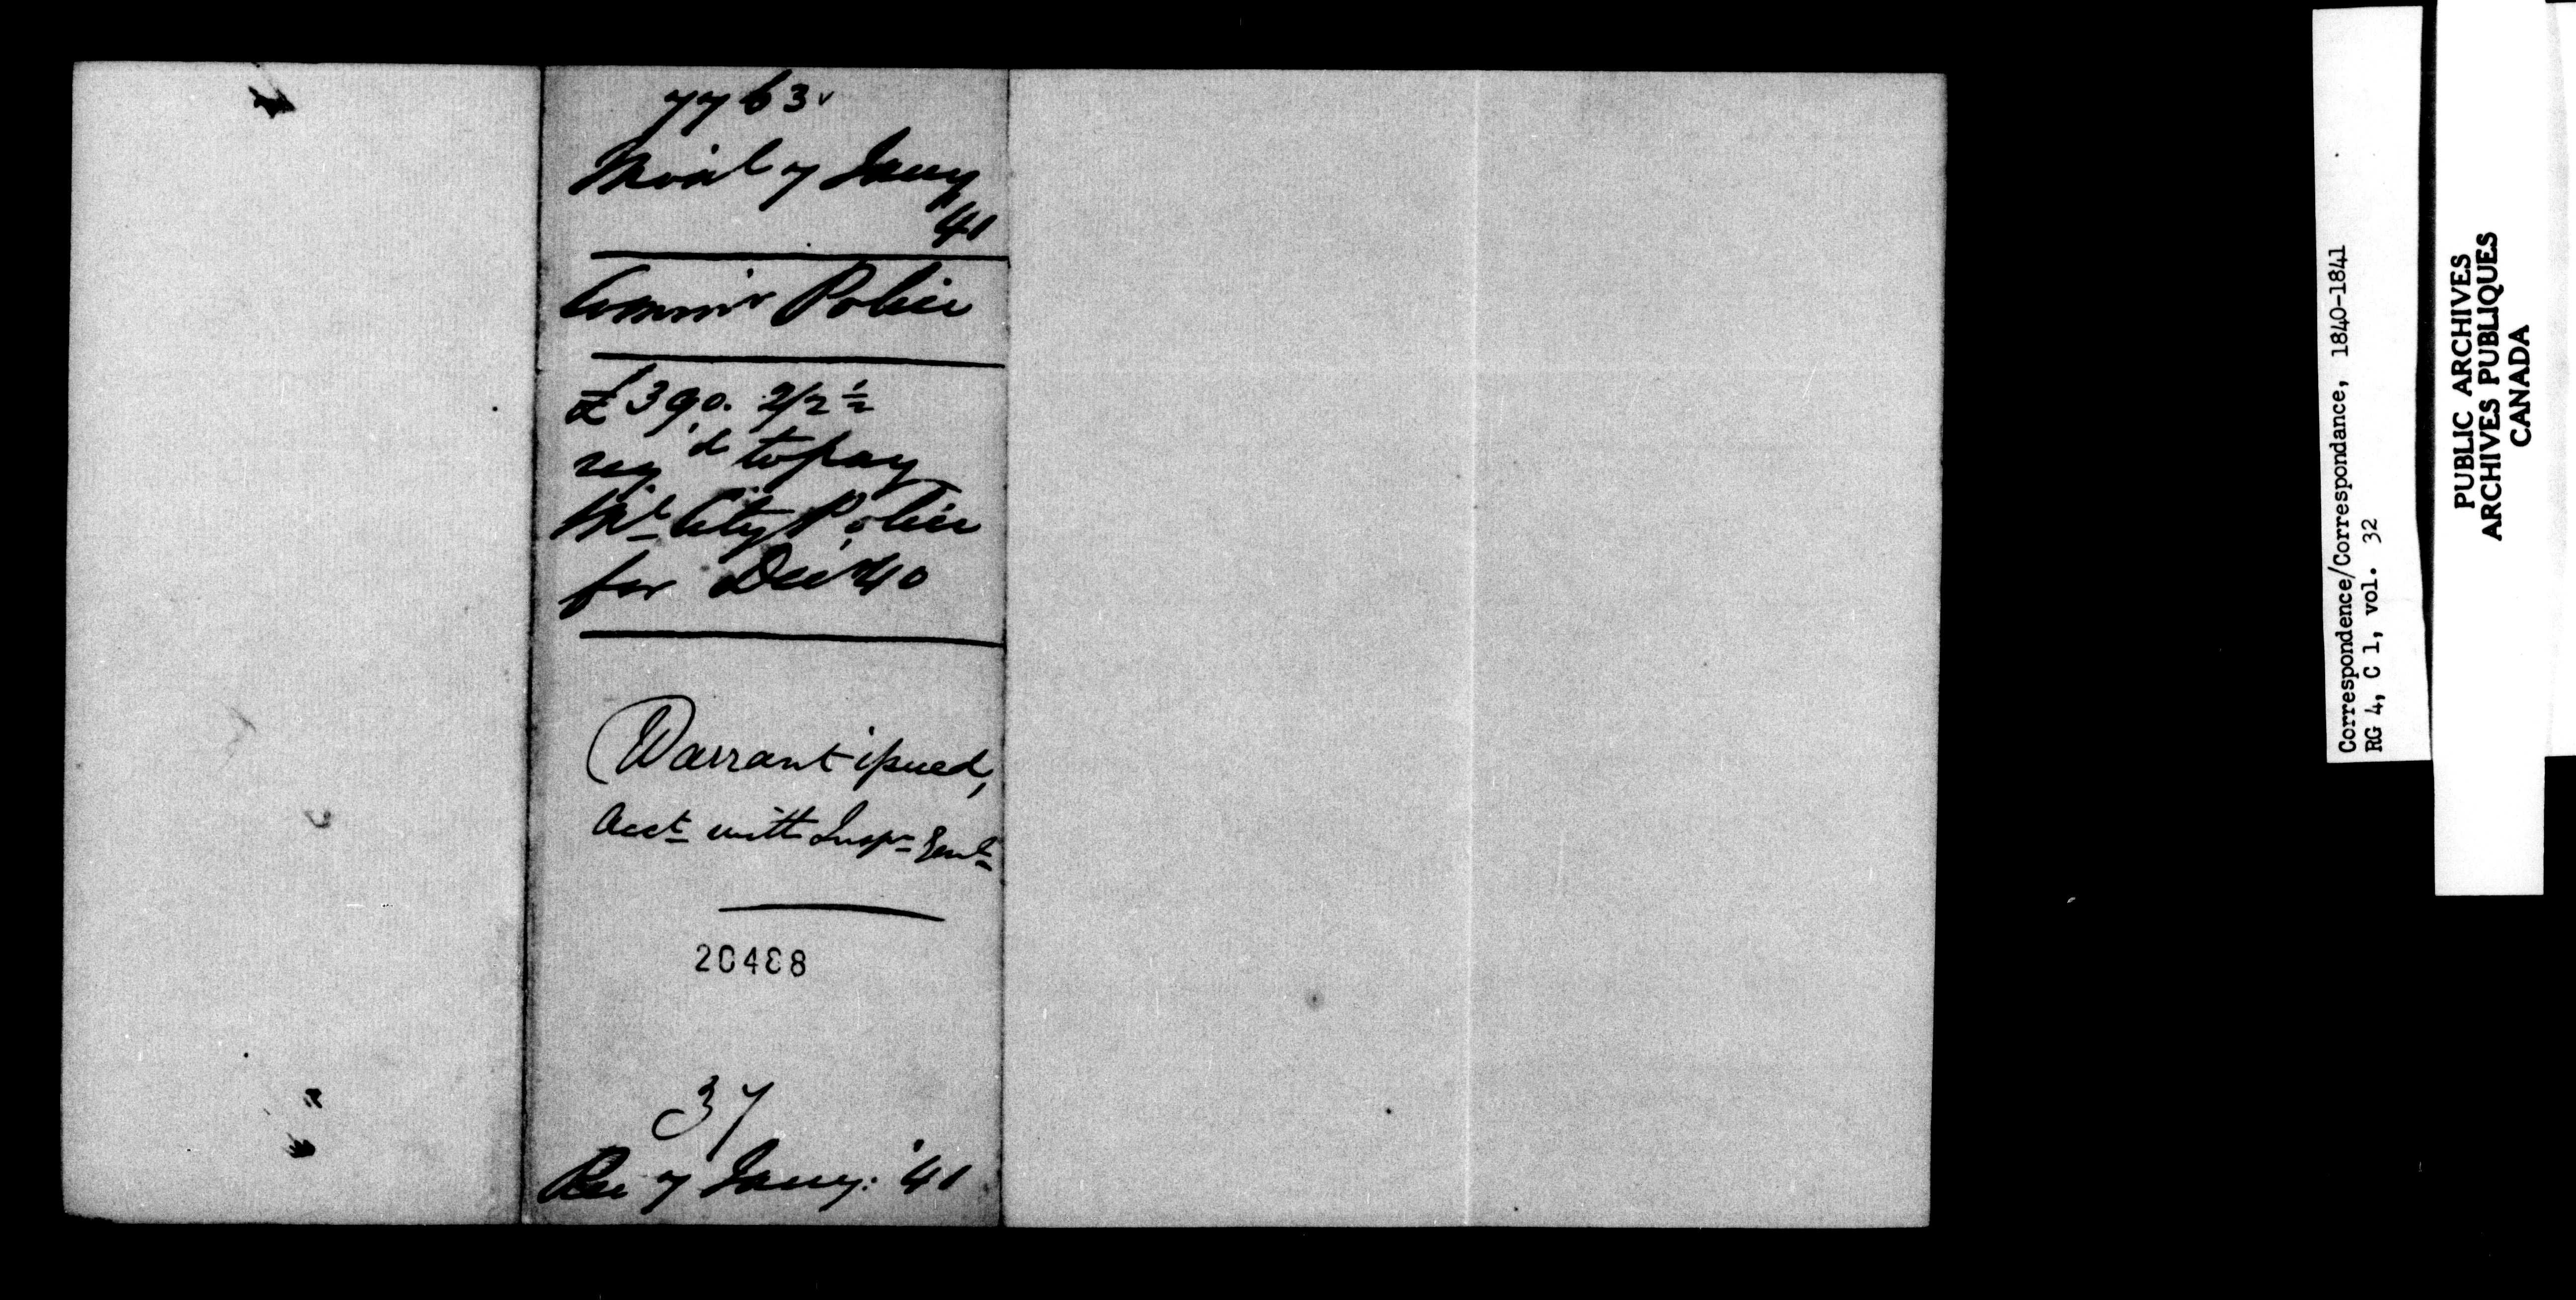 7763
Montl 7 Jany
41
Commr Police
£390. 2/2½
reqd to pay
Ml City Police
for Dec '40
Warrant issued,
Acct with Inspr Genl
20488
37
Rec 7 Jany: '41
Correspondence/Correspondance, 1840-1841
RG 4, C 1, vol. 32
PUBLIC ARCHIVES
ARCHIVES PUBLIQUES
CANADA